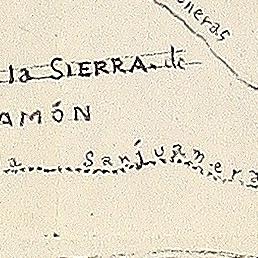 oneras
la SIERRA de
AMÓN
a Sanjuamera